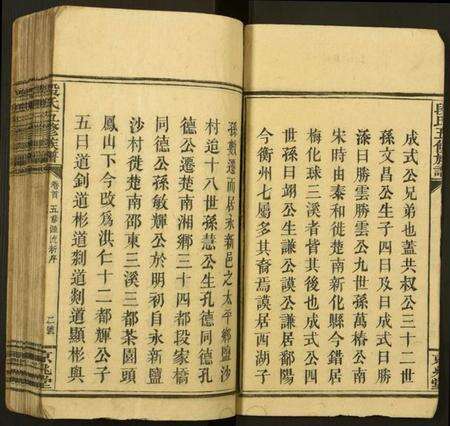 成式公兄弟也蓋共叔公三十二世
孫文昌公生子四曰及曰成式曰勝
添曰勝雲勝雲公九世孫萬椿公南
宋時由泰和徙楚南新化縣今錯居
梅化球三溪者皆其後也成式公四
世孫曰翊公生謙公謨公謙居鄱陽
今衡州七屬多其裔焉謨居西湖子
孫數遷而居永新邑之太平鄉鹽沙
村迨十八世孫慧公生孔德同德孔
德公遷楚南湘鄉三十四都段家橋
同德公孫敏輝公於明初自永新鹽
沙村徙楚南邵東三溪三都茶園頭
鳳山下今改為洪仁十二都輝公子
五曰道釗道彬道剡道顯彬與
段氏五修族譜
卷首
京兆堂
段氏五修族譜
京兆堂